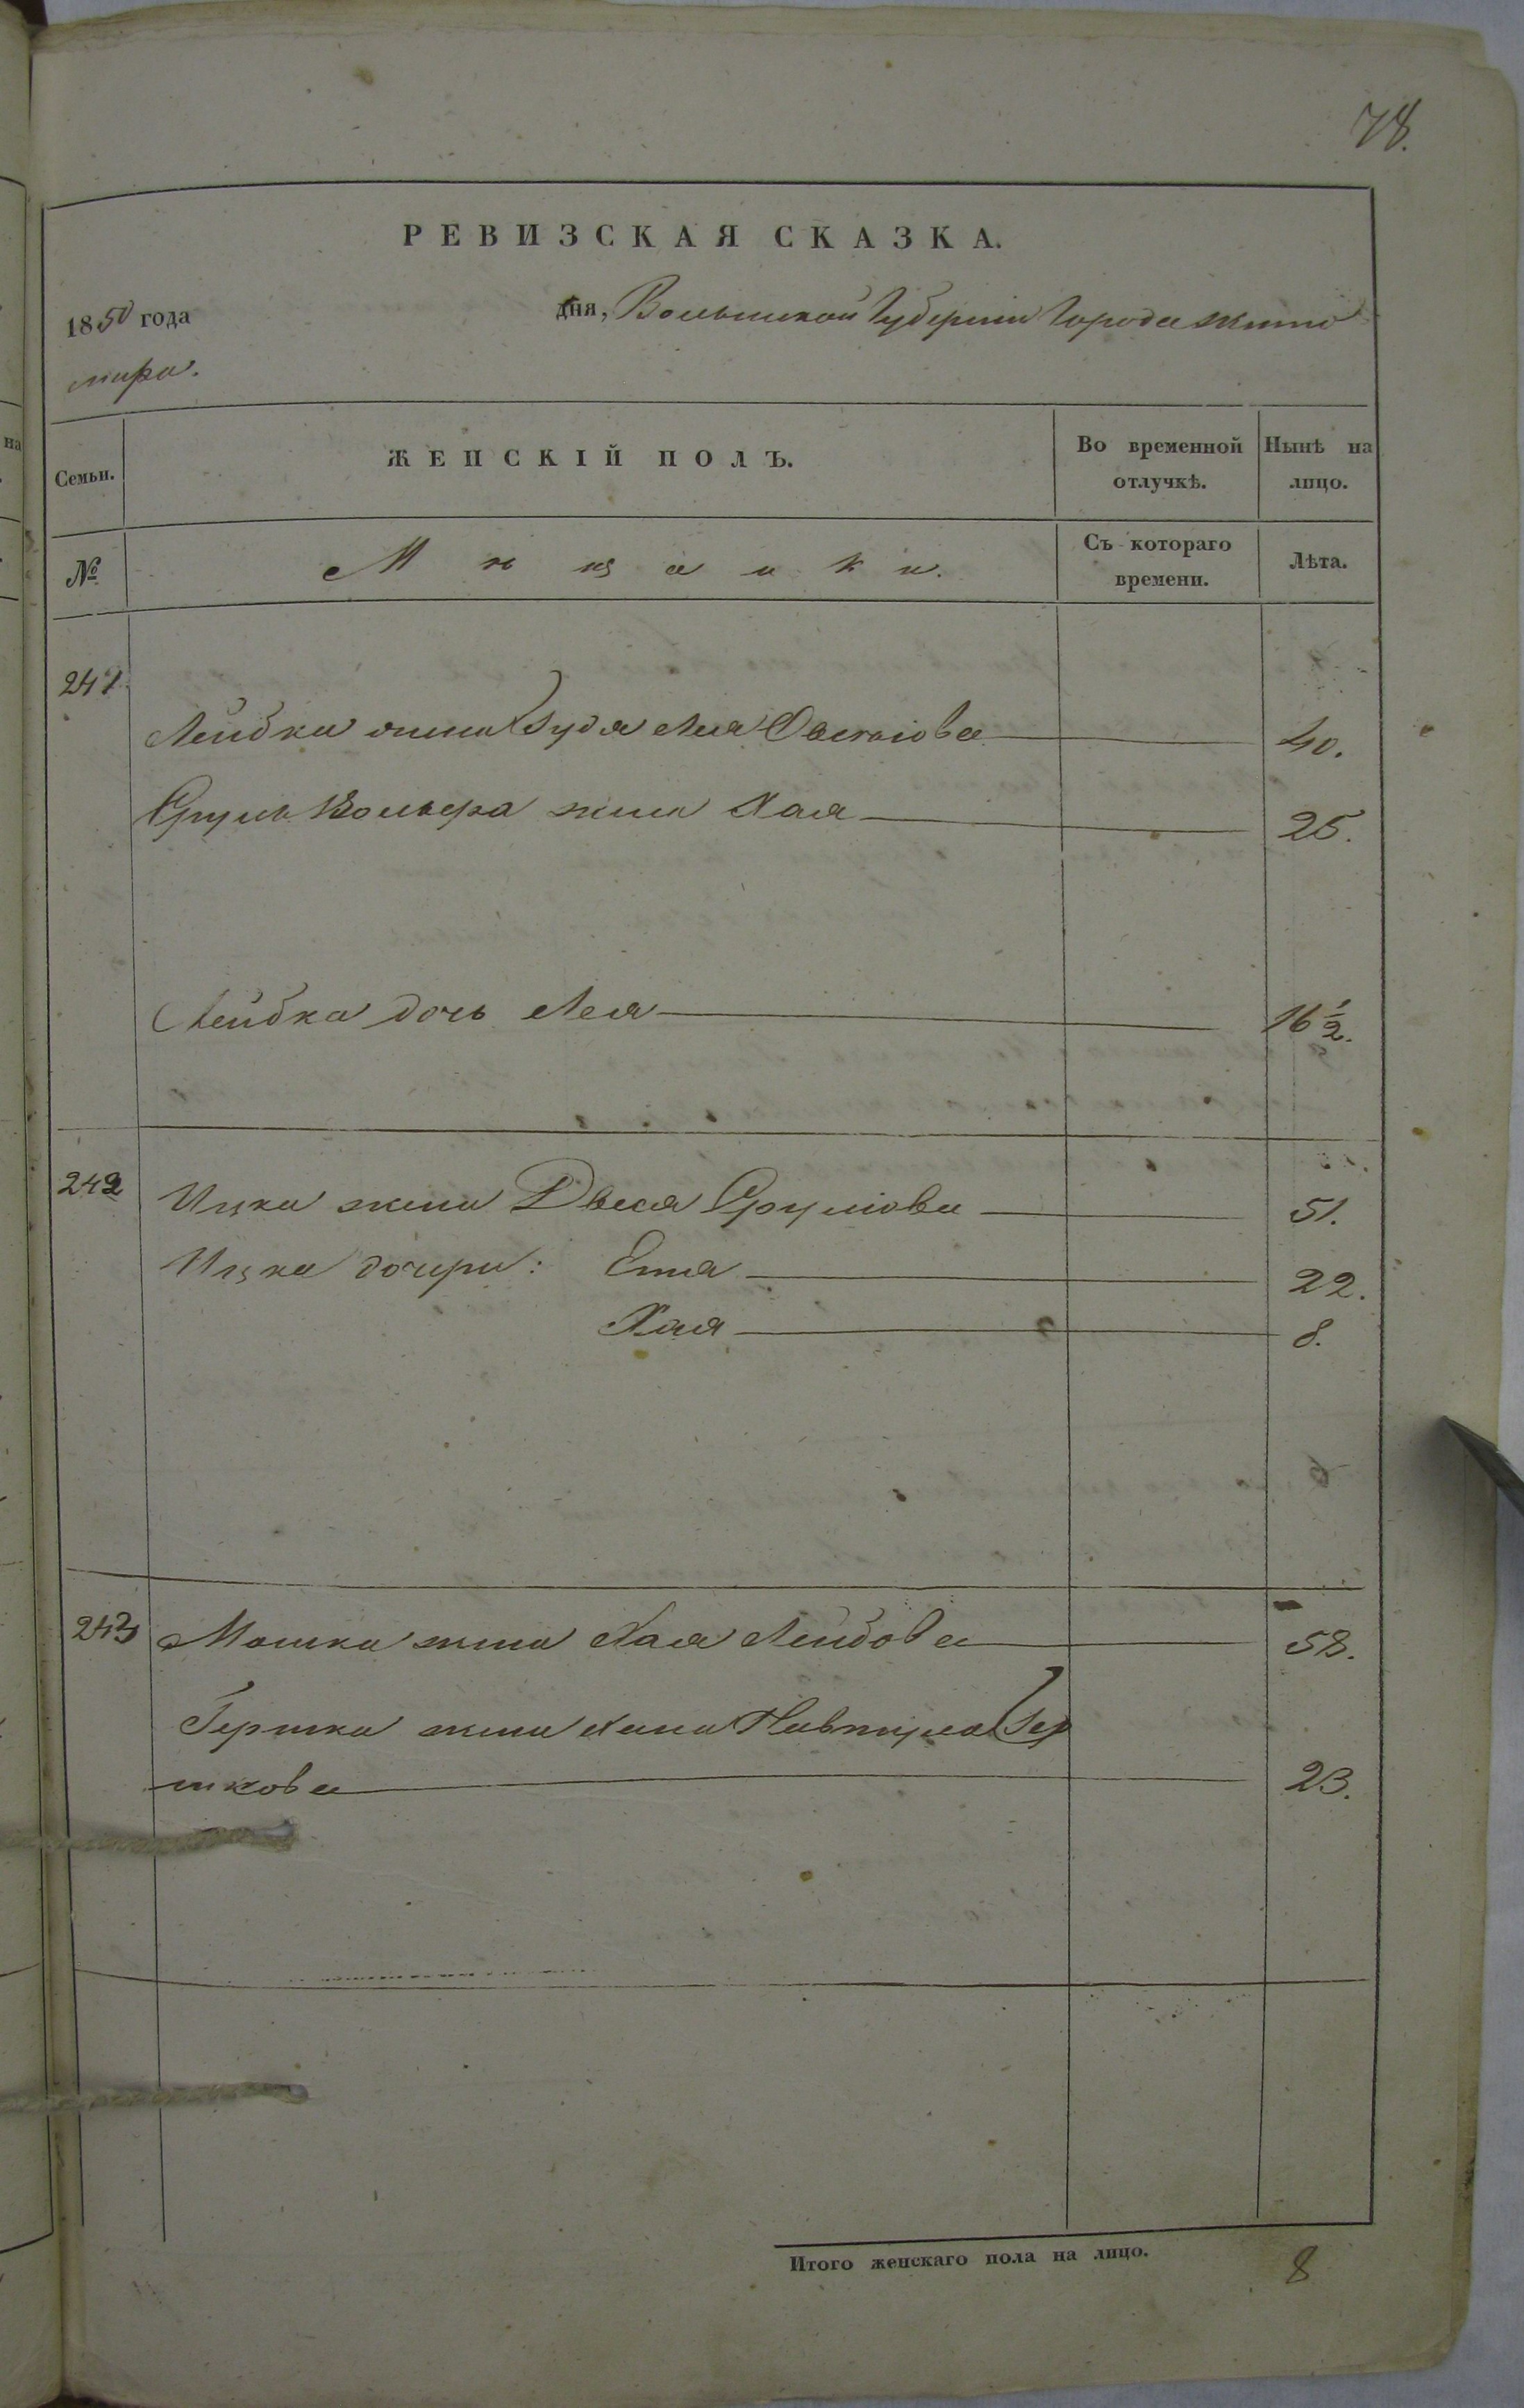 78.
РЕВИЗСКАЯ СКАЗКА.
1850 года дня, Волынской Губернии Города Жито
мира.
Семьи. ЖЕНСКІЙ ПОЛЪ. Во временной отлучкѣ. Нынѣ на лицо.
№ Мѣщанки. Съ котораго времени. Лѣта.
241
Лейбка жена Гудя Лея 40.
Сруль жена Хая 25.
Лейбка дочь Лея 16 1/2.
242 Ицка жена Двеся Срулiова 51.
Ицка дочери: Етя 22.
Хая 8.
243 Мошка жена Хая Лейбова 58.
Гершка жена Хана Гер
шкова 23.
Итого женскаго пола на лицо. 8
на